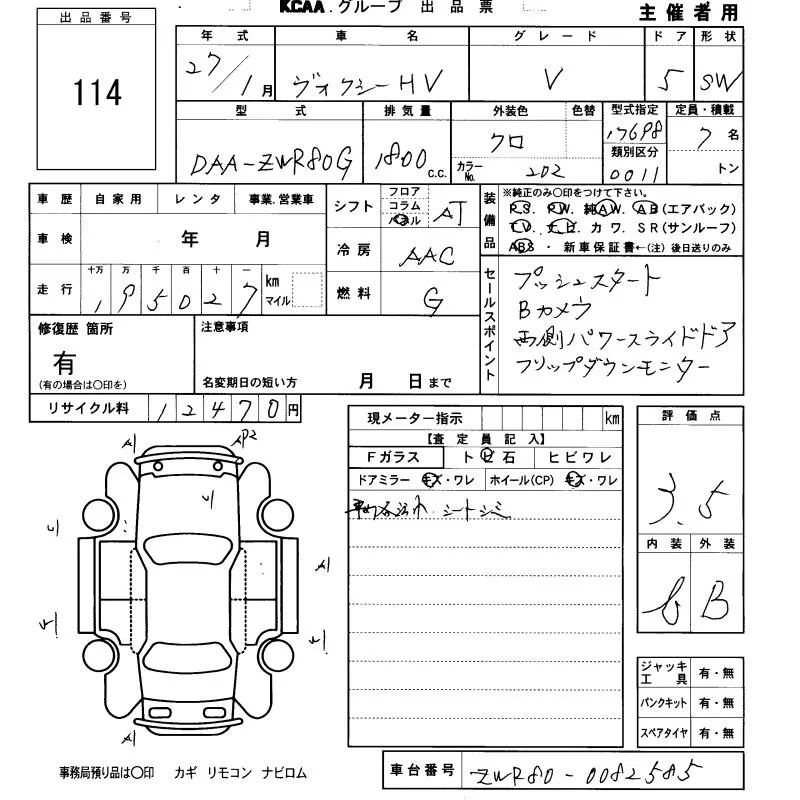 KCAA.グループ 出品票
主催者用
出品番号
114
年式 車名 グレード ドア 形状
27/1月 ヴォクシーHV V 5 SW
型式 排気量 外装色 色替 型式指定 定員・積載
DAA-ZWR80G 1800 C.C. クロ 17698 7名
カラーNo. 202 類別区分 0011 トン
車歴 自家用 レンタ 事業.営業車
車検 年 月
走行 十万 万 千 百 十 一 km マイル
1 9 5 0 2 7
シフト フロア コラム パネル AT
冷房 AAC
燃料 G
装備品 ※純正のみ○印をつけて下さい。
P.S. P.W. 純A.W. A.B(エアバック)
T.V. ナビ カワ. S.R(サンルーフ)
ABS ・ 新車保証書←(注)後日送りのみ
セールスポイント
プッシュスタート
Bカメラ
両側パワースライドドア
フリップダウンモニター
修復歴 箇所 注意事項
有
(有の場合は○印を) 名変期日の短い方 月 日まで
リサイクル料 12470円
現メーター指示 km
【査定員記入】
Fガラス トビ石 ヒビワレ
ドアミラー キズ・ワレ ホイール(CP) キズ・ワレ
シートシミ
評価点
3.5
内装 外装
B
A1 AP2
A1
A1
ジャッキ工具 有・無
パンクキット 有・無
スペアタイヤ 有・無
事務局預り品は○印 カギ リモコン ナビロム
車台番号 ZWR80-0082585